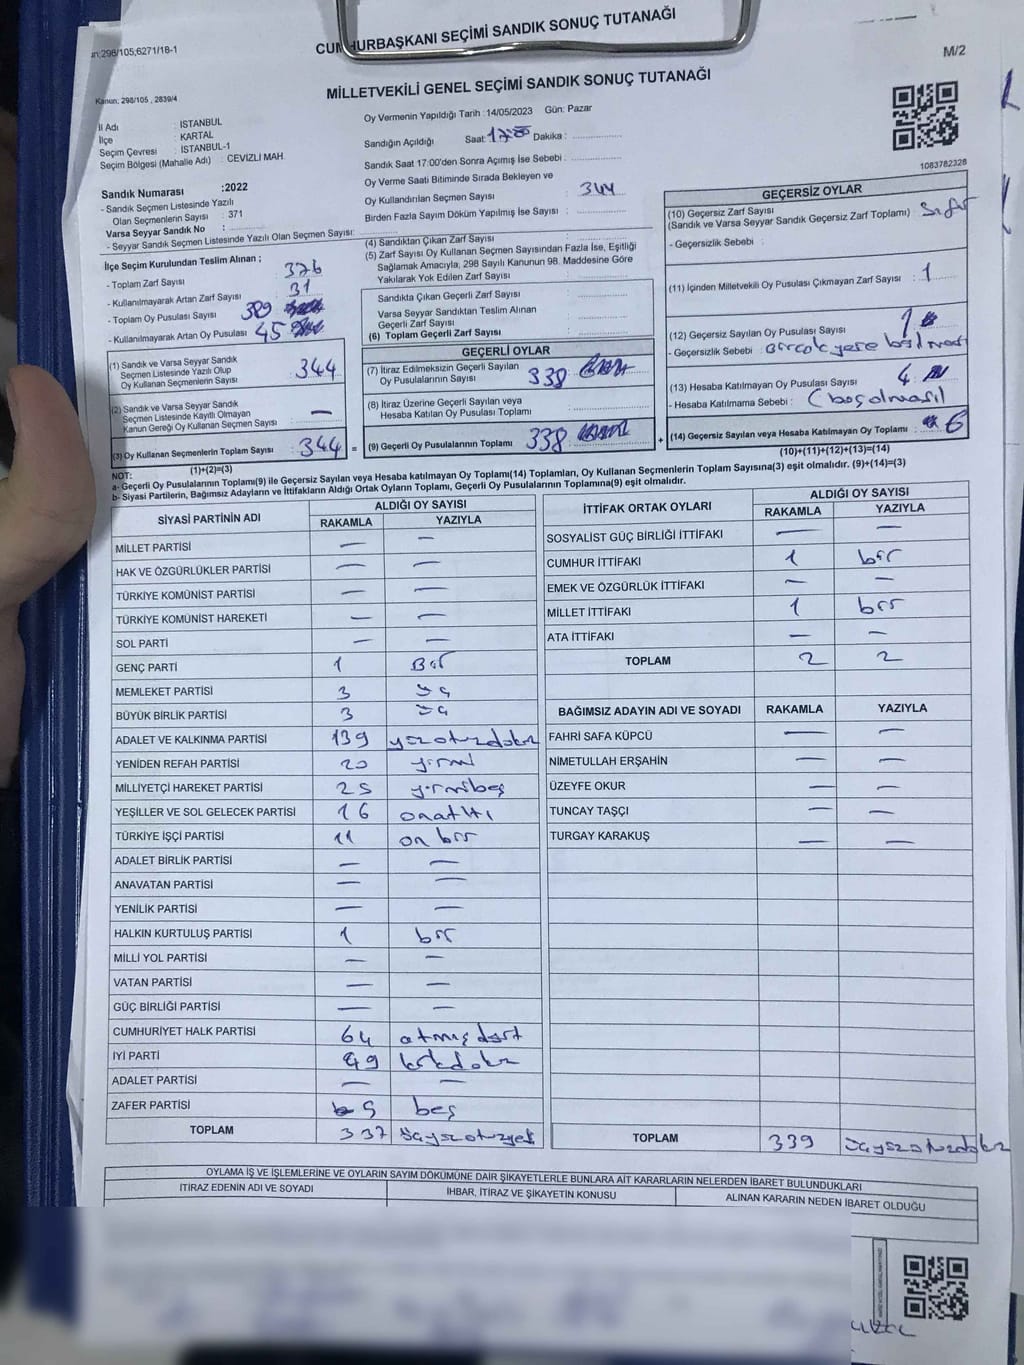 CUMHURBAŞKANI SEÇİMİ SANDIK SONUÇ TUTANAĞI
298/105,6271/18-1
M/2
MİLLETVEKİLİ GENEL SEÇİMİ SANDIK SONUÇ TUTANAĞI
Kanun: 298/105 , 2839/4
İl Adı : İSTANBUL
İlçe : KARTAL
Seçim Çevresi : İSTANBUL-1
Seçim Bölgesi (Mahalle Adı) : CEVİZLİ MAH.
Sandık Numarası :2022
- Sandık Seçmen Listesinde Yazılı
Olan Seçmenlerin Sayısı : 371
Varsa Seyyar Sandık No :
- Seyyar Sandık Seçmen Listesinde Yazılı Olan Seçmen Sayısı:
Oy Vermenin Yapıldığı Tarih :14/05/2023 Gün: Pazar
Sandığın Açıldığı Saat: Dakika :
Sandık Saat 17:00'den Sonra Açımış İse Sebebi :
Oy Verme Saati Bitiminde Sırada Bekleyen ve
Oy Kullandırılan Seçmen Sayısı : 344
Birden Fazla Sayım Döküm Yapılmış İse Sayısı :
1083782328
İlçe Seçim Kurulundan Teslim Alınan ;
- Toplam Zarf Sayısı : 376
- Kullanılmayarak Artan Zarf Sayısı : 31
- Toplam Oy Pusulası Sayısı : 389
- Kullanılmayarak Artan Oy Pusulası : 45
(1) Sandık ve Varsa Seyyar Sandık
Seçmen Listesinde Yazılı Olup
Oy Kullanan Seçmenlerin Sayısı : 344
(2) Sandık ve Varsa Seyyar Sandık
Seçmen Listesinde Kayıtlı Olmayan
Kanun Gereği Oy Kullanan Seçmen Sayısı : —
(3) Oy Kullanan Seçmenlerin Toplam Sayısı : 344 =
(1)+(2)=(3)
(4) Sandıktan Çıkan Zarf Sayısı :
(5) Zarf Sayısı Oy Kullanan Seçmen Sayısından Fazla İse, Eşitliği
Sağlamak Amacıyla, 298 Sayılı Kanunun 98. Maddesine Göre
Yakılarak Yok Edilen Zarf Sayısı :
Sandıkta Çıkan Geçerli Zarf Sayısı :
Varsa Seyyar Sandıktan Teslim Alınan
Geçerli Zarf Sayısı :
(6) Toplam Geçerli Zarf Sayısı :
GEÇERLİ OYLAR
(7) İtiraz Edilmeksizin Geçerli Sayılan
Oy Pusulalarının Sayısı : 338
(8) İtiraz Üzerine Geçerli Sayılan veya
Hesaba Katılan Oy Pusulası Toplamı :
(9) Geçerli Oy Pusulalarının Toplamı : 338 +
GEÇERSİZ OYLAR
(10) Geçersiz Zarf Sayısı
(Sandık ve Varsa Seyyar Sandık Geçersiz Zarf Toplamı) : Sıfır
- Geçersizlik Sebebi :
(11) İçinden Milletvekili Oy Pusulası Çıkmayan Zarf Sayısı : 1
(12) Geçersiz Sayılan Oy Pusulası Sayısı : 1
- Geçersizlik Sebebi : Birçok yere
(13) Hesaba Katılmayan Oy Pusulası Sayısı : 4
- Hesaba Katılmama Sebebi : (boş olması)
(14) Geçersiz Sayılan veya Hesaba Katılmayan Oy Toplamı : 6
(10)+(11)+(12)+(13)=(14)
NOT:
a- Geçerli Oy Pusulalarının Toplamı(9) ile Geçersiz Sayılan veya Hesaba katılmayan Oy Toplamı(14) Toplamları, Oy Kullanan Seçmenlerin Toplam Sayısına(3) eşit olmalıdır. (9)+(14)=(3)
b- Siyasi Partilerin, Bağımsız Adayların ve İttifakların Aldığı Ortak Oyların Toplamı, Geçerli Oy Pusulalarının Toplamına(9) eşit olmalıdır.
SİYASİ PARTİNİN ADI ALDIĞI OY SAYISI
RAKAMLA YAZIYLA
MİLLET PARTİSİ — —
HAK VE ÖZGÜRLÜKLER PARTİSİ — —
TÜRKİYE KOMÜNİST PARTİSİ — —
TÜRKİYE KOMÜNİST HAREKETİ — —
SOL PARTİ — —
GENÇ PARTİ 1 Bir
MEMLEKET PARTİSİ 3 üç
BÜYÜK BİRLİK PARTİSİ 3 üç
ADALET VE KALKINMA PARTİSİ 139 yüzotuzdokuz
YENİDEN REFAH PARTİSİ 20 yirmi
MİLLİYETÇİ HAREKET PARTİSİ 25 yirmibeş
YEŞİLLER VE SOL GELECEK PARTİSİ 16 onaltı
TÜRKİYE İŞÇİ PARTİSİ 11 on bir
ADALET BİRLİK PARTİSİ — —
ANAVATAN PARTİSİ — —
YENİLİK PARTİSİ — —
HALKIN KURTULUŞ PARTİSİ 1 bir
MİLLİ YOL PARTİSİ — —
VATAN PARTİSİ — —
GÜÇ BİRLİĞİ PARTİSİ — —
CUMHURİYET HALK PARTİSİ 64 atmışdört
İYİ PARTİ 49 kırkdokuz
ADALET PARTİSİ — —
ZAFER PARTİSİ 5 beş
TOPLAM 337 üçyüzotuzyedi
İTTİFAK ORTAK OYLARI ALDIĞI OY SAYISI
RAKAMLA YAZIYLA
SOSYALİST GÜÇ BİRLİĞİ İTTİFAKI — —
CUMHUR İTTİFAKI 1 bir
EMEK VE ÖZGÜRLÜK İTTİFAKI — —
MİLLET İTTİFAKI 1 bir
ATA İTTİFAKI — —
TOPLAM 2 2
BAĞIMSIZ ADAYIN ADI VE SOYADI RAKAMLA YAZIYLA
FAHRİ SAFA KÜPCÜ — —
NİMETULLAH ERŞAHİN — —
ÜZEYFE OKUR — —
TUNCAY TAŞÇI — —
TURGAY KARAKUŞ — —
TOPLAM 339 üçyüzotuzdokuz
OYLAMA İŞ VE İŞLEMLERİNE VE OYLARIN SAYIM DÖKÜMÜNE DAİR ŞİKAYETLERLE BUNLARA AİT KARARLARIN NELERDEN İBARET BULUNDUKLARI
İTİRAZ EDENİN ADI VE SOYADI İHBAR, İTİRAZ VE ŞİKAYETİN KONUSU ALINAN KARARIN NEDEN İBARET OLDUĞU